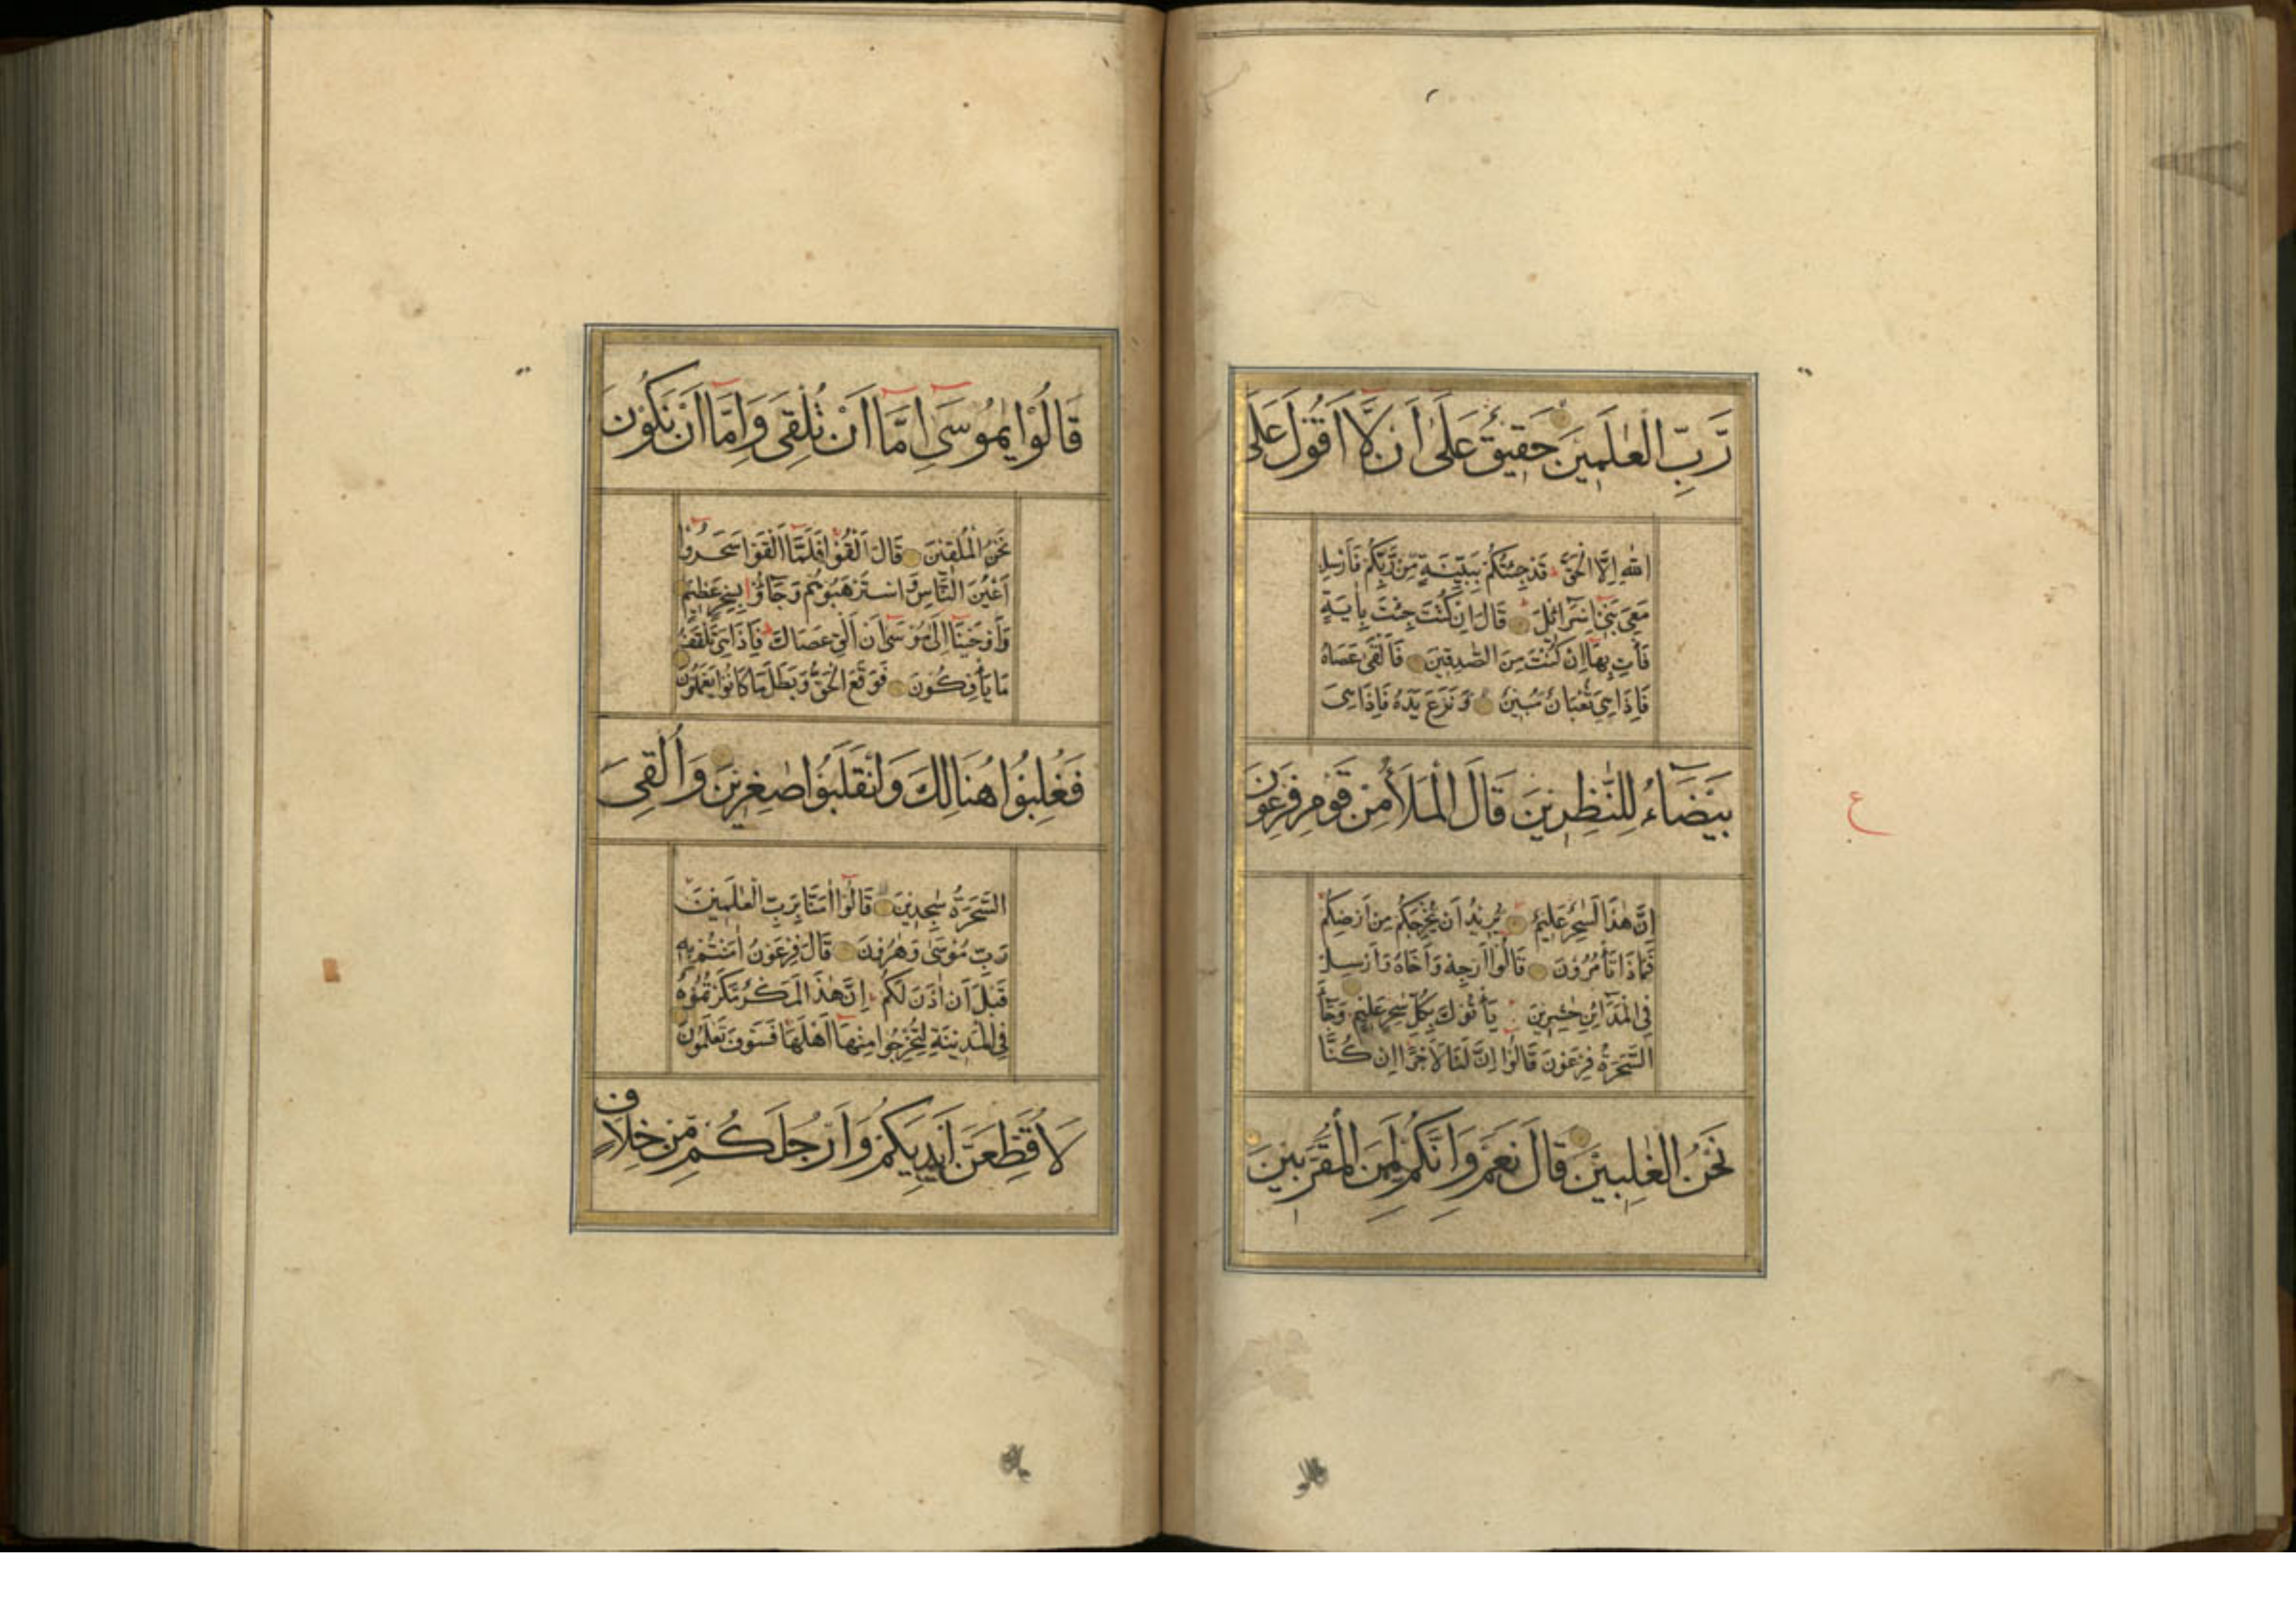 رَّبِّ الْعٰلَمِيْنَ حَقِيْقٌ عَلٰى اَنْ لَّا اَقُوْلَ عَلَى
اللّٰهِ اِلَّا الْحَقَّ قَدْ جِئْتُكُمْ بِبَيِّنَةٍ مِّنْ رَّبِّكُمْ فَاَرْسِلْ
مَعِىَ بَنِىْ اِسْرَائِلَ قَالَ اِنْ كُنْتَ جِئْتَ بِاٰيَةٍ
فَأْتِ بِهَا اِنْ كُنْتَ مِنَ الصّٰدِقِيْنَ فَاَلْقٰى عَصَاهُ
فَاِذَا هِىَ ثُعْبَانٌ مُّبِيْنٌ وَّنَزَعَ يَدَهُ فَاِذَا هِىَ
بَيْضَاءُ لِلنّٰظِرِيْنَ قَالَ الْمَلَأُ مِنْ قَوْمِ فِرْعَوْنَ
اِنَّ هٰذَا لَسٰحِرٌ عَلِيْمٌ يُّرِيْدُ اَنْ يُّخْرِجَكُمْ مِنْ اَرْضِكُمْ
فَمَاذَا تَأْمُرُوْنَ قَالُوْا اَرْجِهْ وَاَخَاهُ وَاَرْسِلْ
فِى الْمَدَائِنِ حٰشِرِيْنَ يَأْتُوْكَ بِكُلِّ سٰحِرٍ عَلِيْمٍ وَجَاءَ
السَّحَرَةُ فِرْعَوْنَ قَالُوْا اِنَّ لَنَا لَاَجْرًا اِنْ كُنَّا
نَحْنُ الْغٰلِبِيْنَ قَالَ نَعَمْ وَاِنَّكُمْ لَمِنَ الْمُقَرَّبِيْنَ
ع
قَالُوْا يٰمُوْسٰى اِمَّا اَنْ تُلْقِىَ وَاِمَّا اَنْ نَكُوْنَ
نَحْنُ الْمُلْقِيْنَ قَالَ اَلْقُوْا فَلَمَّا اَلْقَوْا سَحَرُوْا
اَعْيُنَ النَّاسِ وَاسْتَرْهَبُوْهُمْ وَجَاؤُا بِسِحْرٍ عَظِيْمٍ
وَاَوْحَيْنَا اِلٰى مُوْسٰى اَنْ اَلْقِ عَصَاكَ فَاِذَا هِىَ تَلْقَفُ
مَا يَأْفِكُوْنَ فَوَقَعَ الْحَقُّ وَبَطَلَ مَا كَانُوْا يَعْمَلُوْنَ
فَغُلِبُوْا هُنَالِكَ وَانْقَلَبُوْا صٰغِرِيْنَ وَاُلْقِىَ
السَّحَرَةُ سٰجِدِيْنَ قَالُوْا اٰمَنَّا بِرَبِّ الْعٰلَمِيْنَ
رَبِّ مُوْسٰى وَهٰرُوْنَ قَالَ فِرْعَوْنُ اٰمَنْتُمْ بِهٖ
قَبْلَ اَنْ اٰذَنَ لَكُمْ اِنَّ هٰذَا لَمَكْرٌ مَّكَرْتُمُوْهُ
فِى الْمَدِيْنَةِ لِتُخْرِجُوْا مِنْهَا اَهْلَهَا فَسَوْفَ تَعْلَمُوْنَ
لَاُقَطِّعَنَّ اَيْدِيَكُمْ وَاَرْجُلَكُمْ مِّنْ خِلَافٍ